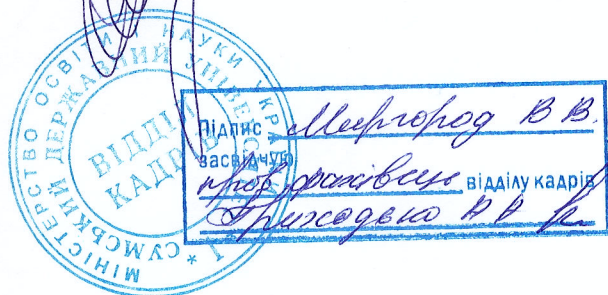 МІНІСТЕРСТВО ОСВІТИ І НАУКИ УКРАЇНИ
* СУМСЬКИЙ ДЕРЖАВНИЙ УНІВЕРСИТЕТ
ВІДДІЛ
КАДРІВ
Підпис Миргород В В.
засвідчую
пров фахівець відділу кадрів
Приходько А А